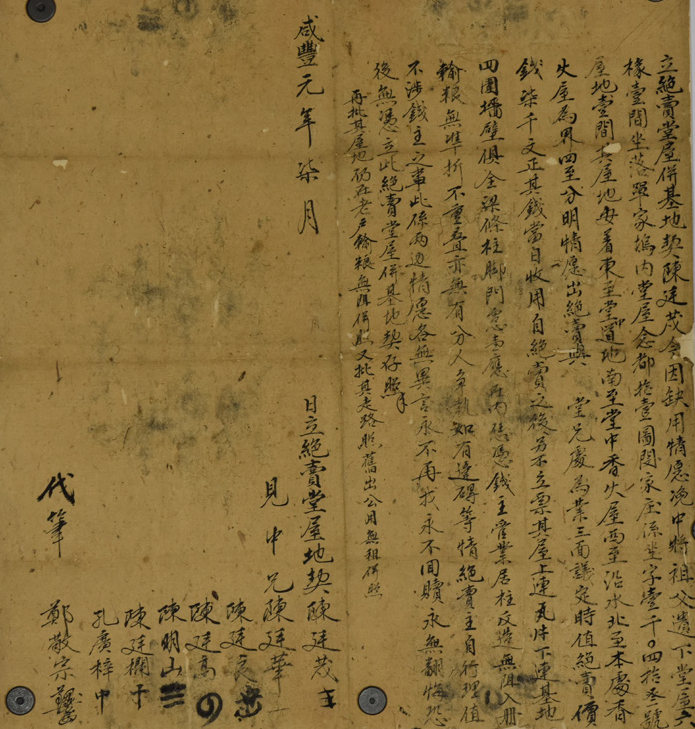 立絕賣堂屋併基地契陳廷茂今因缺用情愿浼中將祖父遺下堂屋六
椽壹間坐落單家塢內堂屋念都拾壹圖問家庄係坐字壹千〇四拾叁號
屋地壹間其屋地每着東至堂道地南至堂中香火屋西至沿水北至本處香
火屋為界四至分明情愿出絕賣與 堂兄慶為業三面議定時值絕賣價
錢柒千文正其錢當日收用自絕賣之後另不立票其屋上連瓦片下連基地
四圍墻壁俱全梁條柱脚門窓在內憑錢主管業居柱改造無阻入冊
輸粮無準折不重叠亦無有分人爭執如有違碍等情絕賣主自行理值
不涉錢主之事此係兩边情愿各無異言永不再找永不回贖永無翻悔恐
後無憑立此絕賣堂屋併基地契存照
再批其屋地仍在老戶輸粮無阻併照又批其走路照舊出入公用無租併照
咸豐元年柒月 日立絕賣堂屋地契陳廷茂
見中兄陳廷華
陳廷良
陳廷高
陳明山
陳廷欄
孔廣梓中
代筆 鄭敬宗